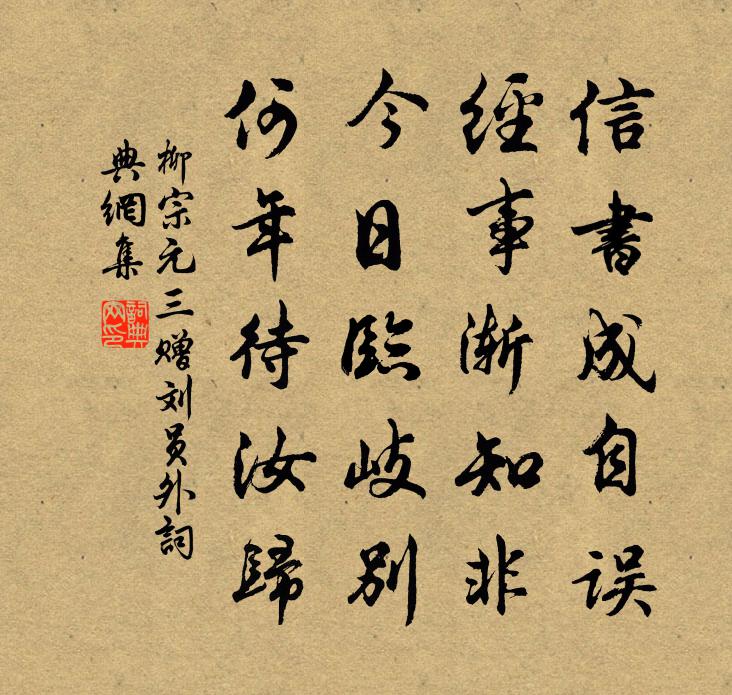 信書成自误
經事漸知非
今日臨岐别
何年待汝歸
柳宗元三赠刘员外詞
典網集
詞典网印